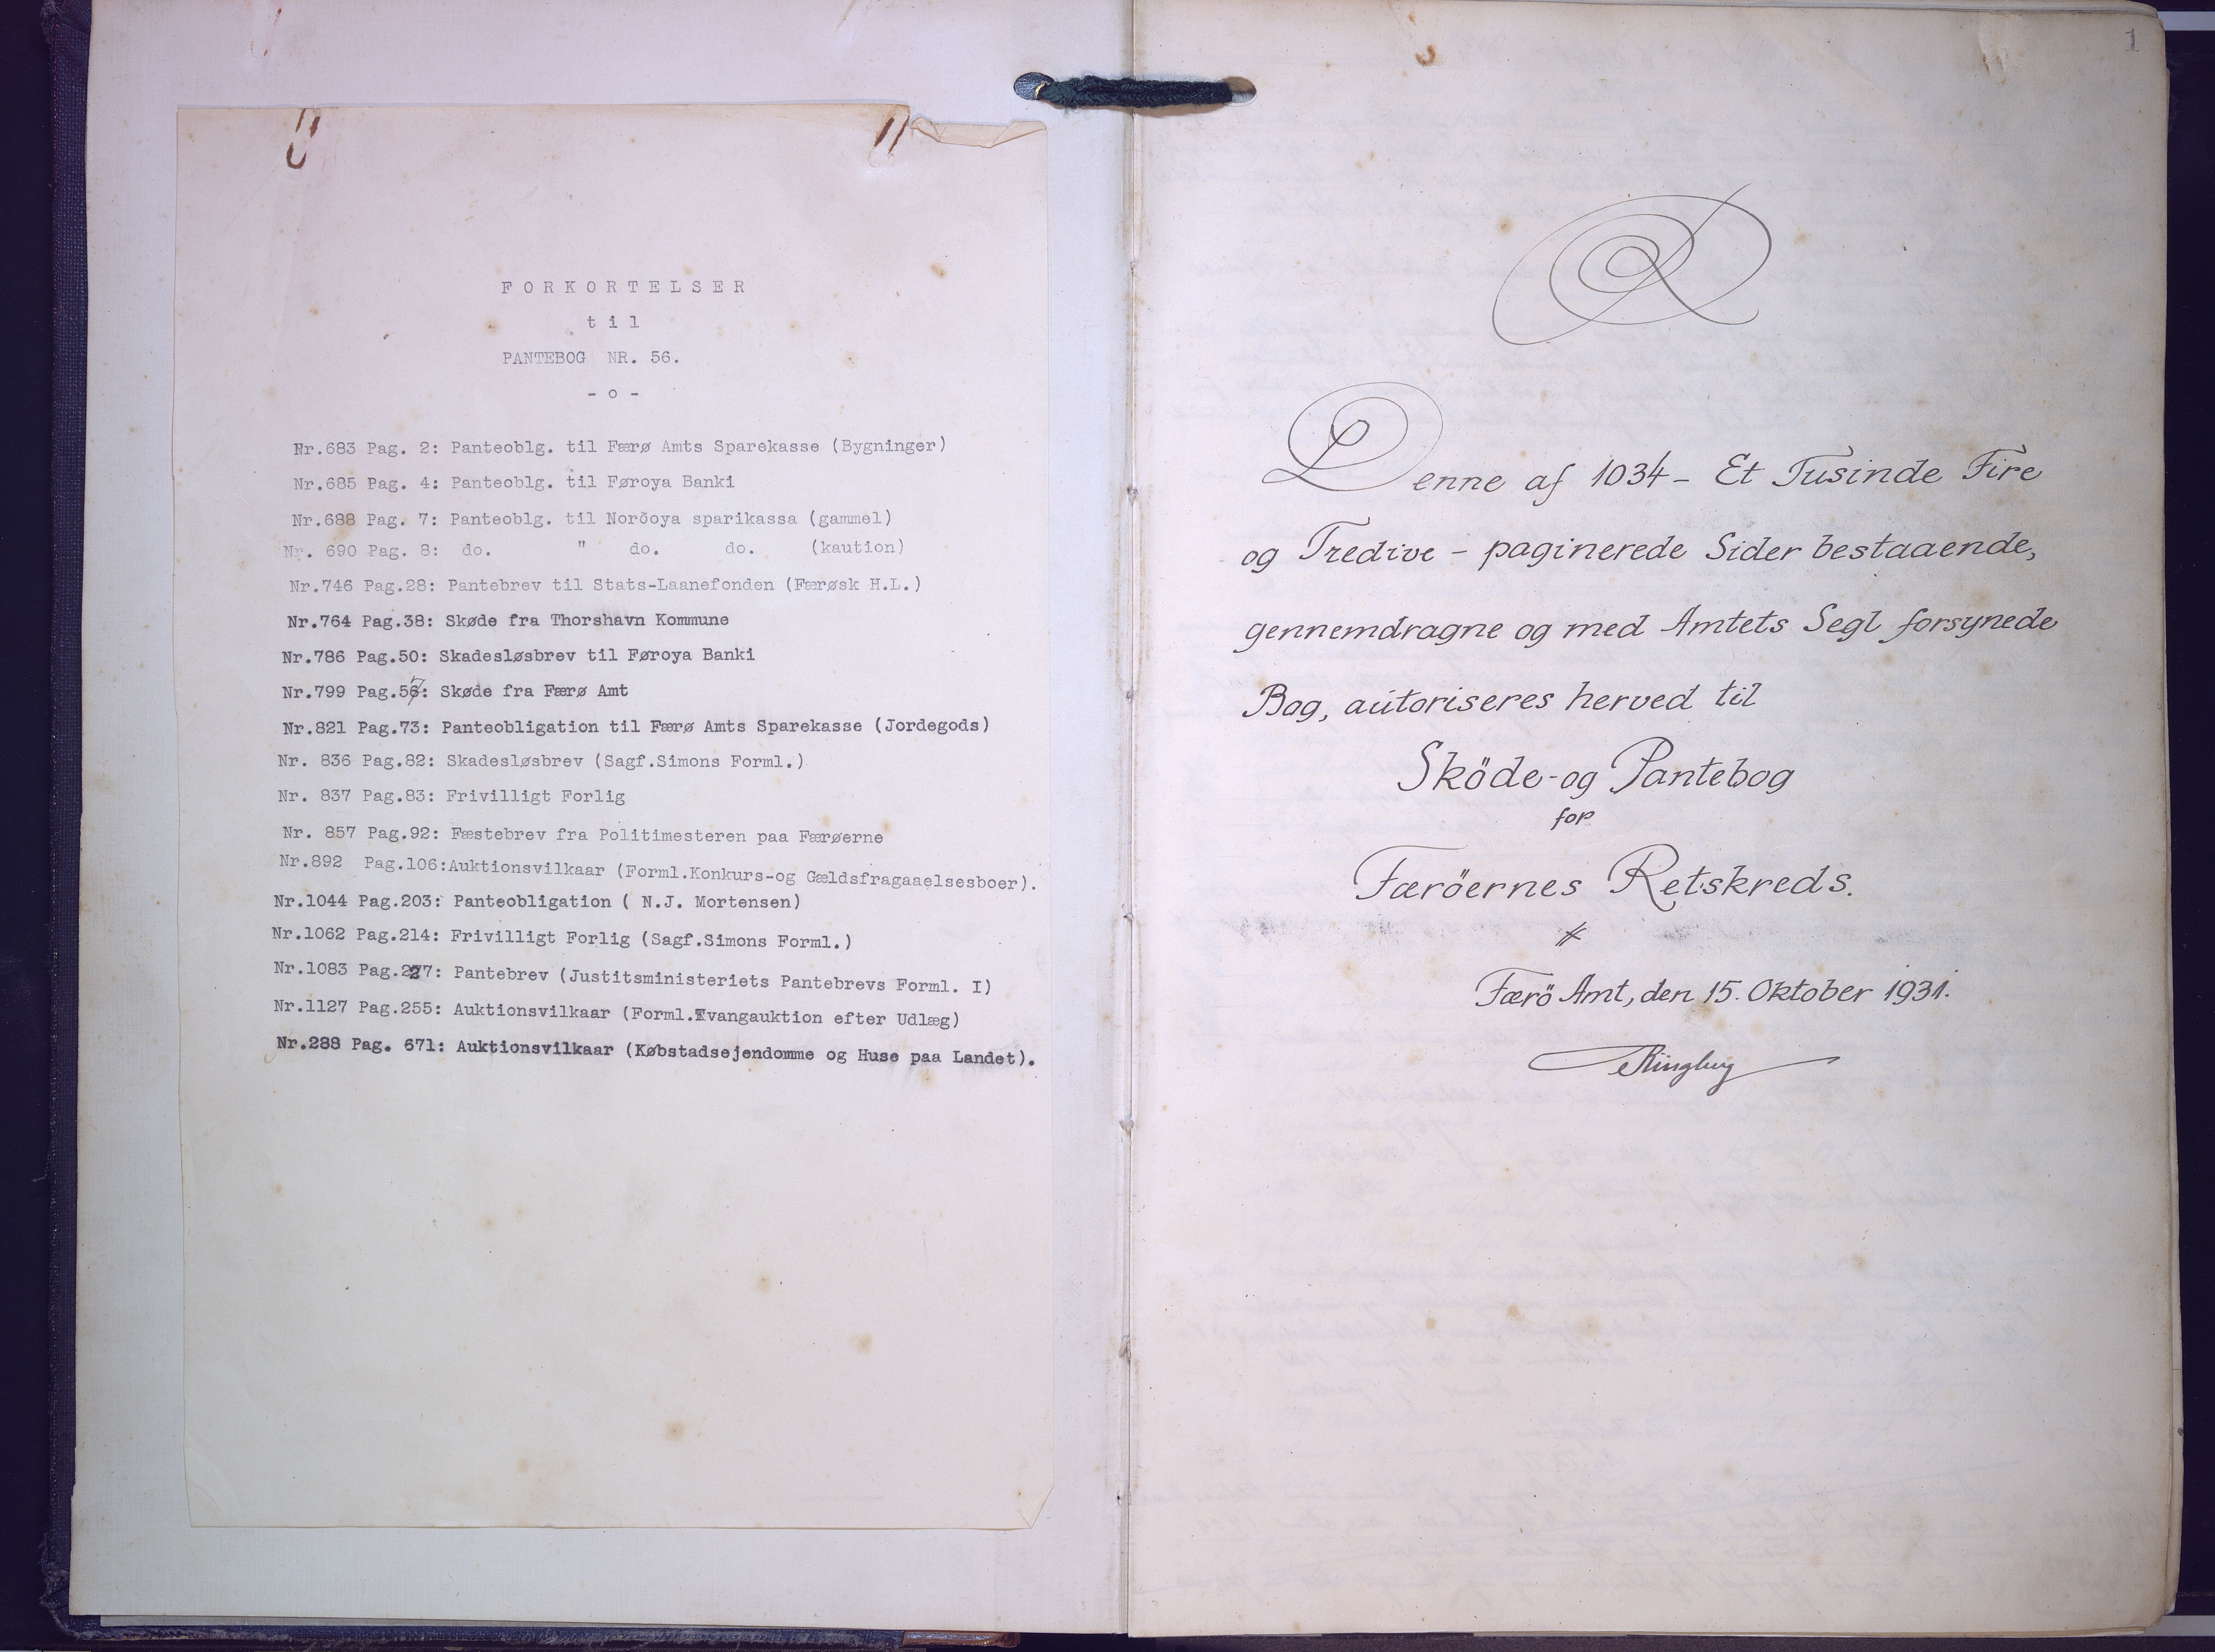 FORKORTELSER
til
PANTEBOG NR. 56.
- o -
Nr.683 Pag. 2: Panteoblg. til Færø Amts Sparekasse (Bygninger)
Nr.685 Pag. 4: Panteoblg. til Føroya Banki
Nr.688 Pag. 7: Panteoblg. til Norðoya sparikassa (gammel)
Nr. 690 Pag. 8: do. " do. do. (kaution)
Nr.746 Pag.28: Pantebrev til Stats-Laanefonden (Færøsk H.L.)
Nr.764 Pag.38: Skøde fra Thorshavn Kommune
Nr.786 Pag.50: Skadesløsbrev til Føroya Banki
Nr.799 Pag.57: Skøde fra Færø Amt
Nr.821 Pag.73: Panteobligation til Færø Amts Sparekasse (Jordegods)
Nr. 836 Pag.82: Skadesløsbrev (Sagf.Simons Forml.)
Nr. 837 Pag.83: Frivilligt Forlig
Nr. 857 Pag.92: Fæstebrev fra Politimesteren paa Færøerne
Nr.892 Pag.106:Auktionsvilkaar (Forml.Konkurs-og Gældsfragaaelsesboer).
Nr.1044 Pag.203: Panteobligation ( N.J. Mortensen)
Nr.1062 Pag.214: Frivilligt Forlig (Sagf.Simons Forml.)
Nr.1083 Pag.227: Pantebrev (Justitsministeriets Pantebrevs Forml. I)
Nr.1127 Pag.255: Auktionsvilkaar (Forml.Tvangauktion efter Udlæg)
Nr.288 Pag. 671: Auktionsvilkaar (Købstadsejendomme og Huse paa Landet).
1
Denne af 1034 - Et Tusinde Fire
og Tredive - paginerede Sider bestaaende,
gennemdragne og med Amtets Segl forsynede
Bog, autoriseres herved til
Sköde- og Pantebog
for
Færöernes Retskreds.
Færö Amt, den 15. Oktober 1931.